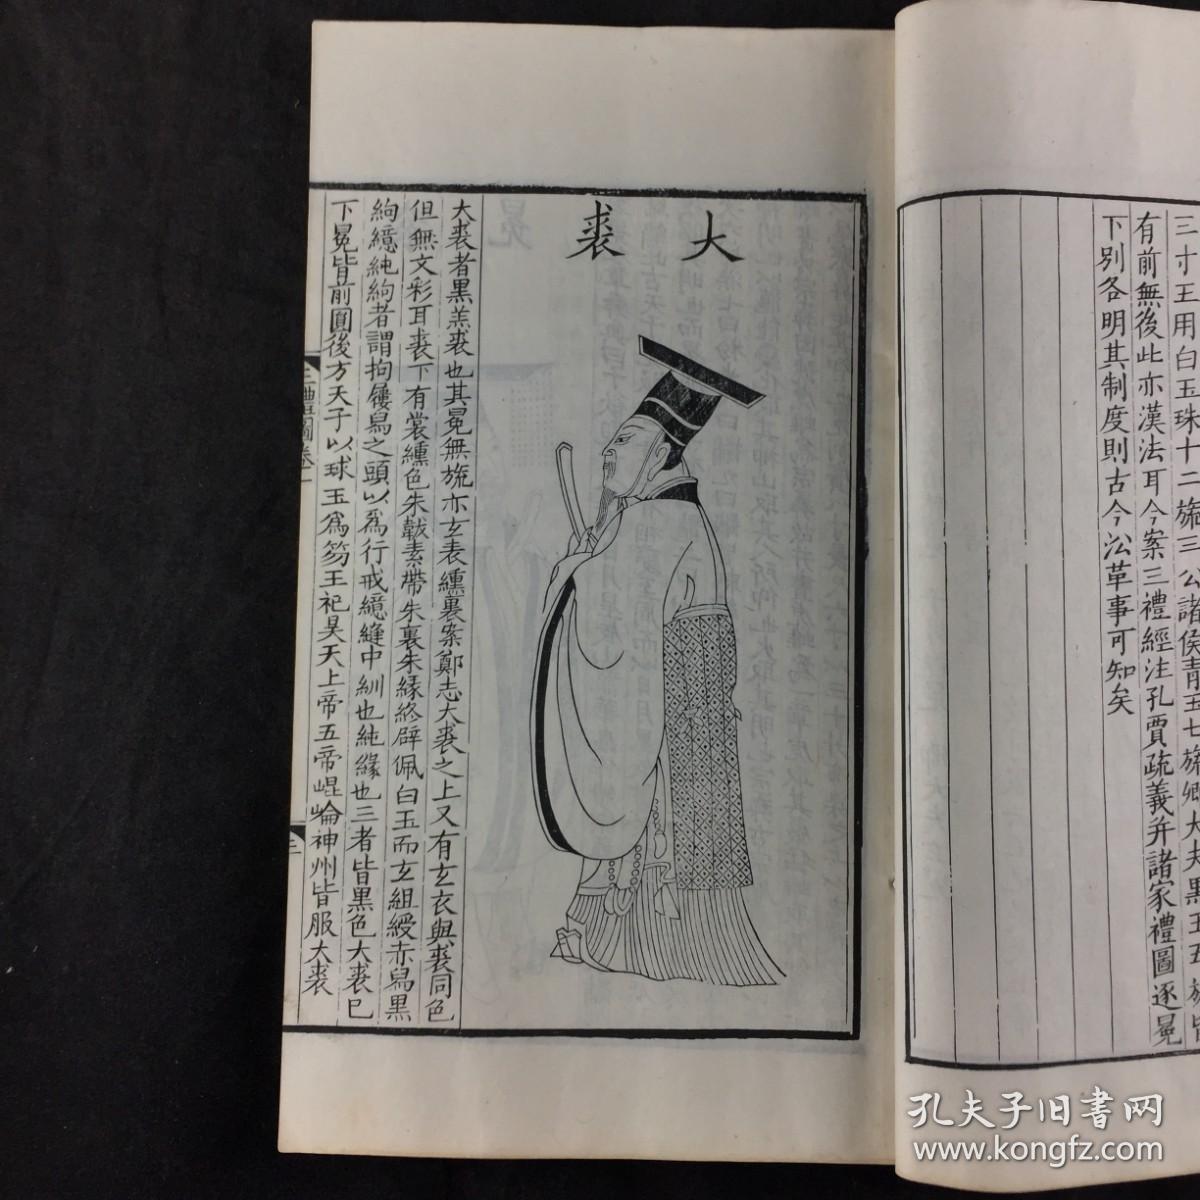 三寸王用白玉珠十二旒三公諸侯青玉七旒卿大夫黑玉五旒皆
有前無後此亦漢法耳今案三禮經注孔賈疏義并諸家禮圖逐冕
下別各明其制度則古今沿革事可知矣
大裘
大裘者黑羔裘也其冕無旒亦玄表纁裏案鄭志大裘之上又有玄衣與裘同色
但無文彩耳裘下有裳纁色朱韍素帶朱裏朱緣終辟佩白玉而玄組綬赤舄黑
絇繶純絇者謂拘屨舄之頭以為行戒繶縫中紃也純緣也三者皆黑色大裘已
下冕皆前圓後方天子以球玉爲笏王祀昊天上帝五帝崐崘神州皆服大裘
三禮圖卷一
三
孔夫子旧书网
www.kongfz.com